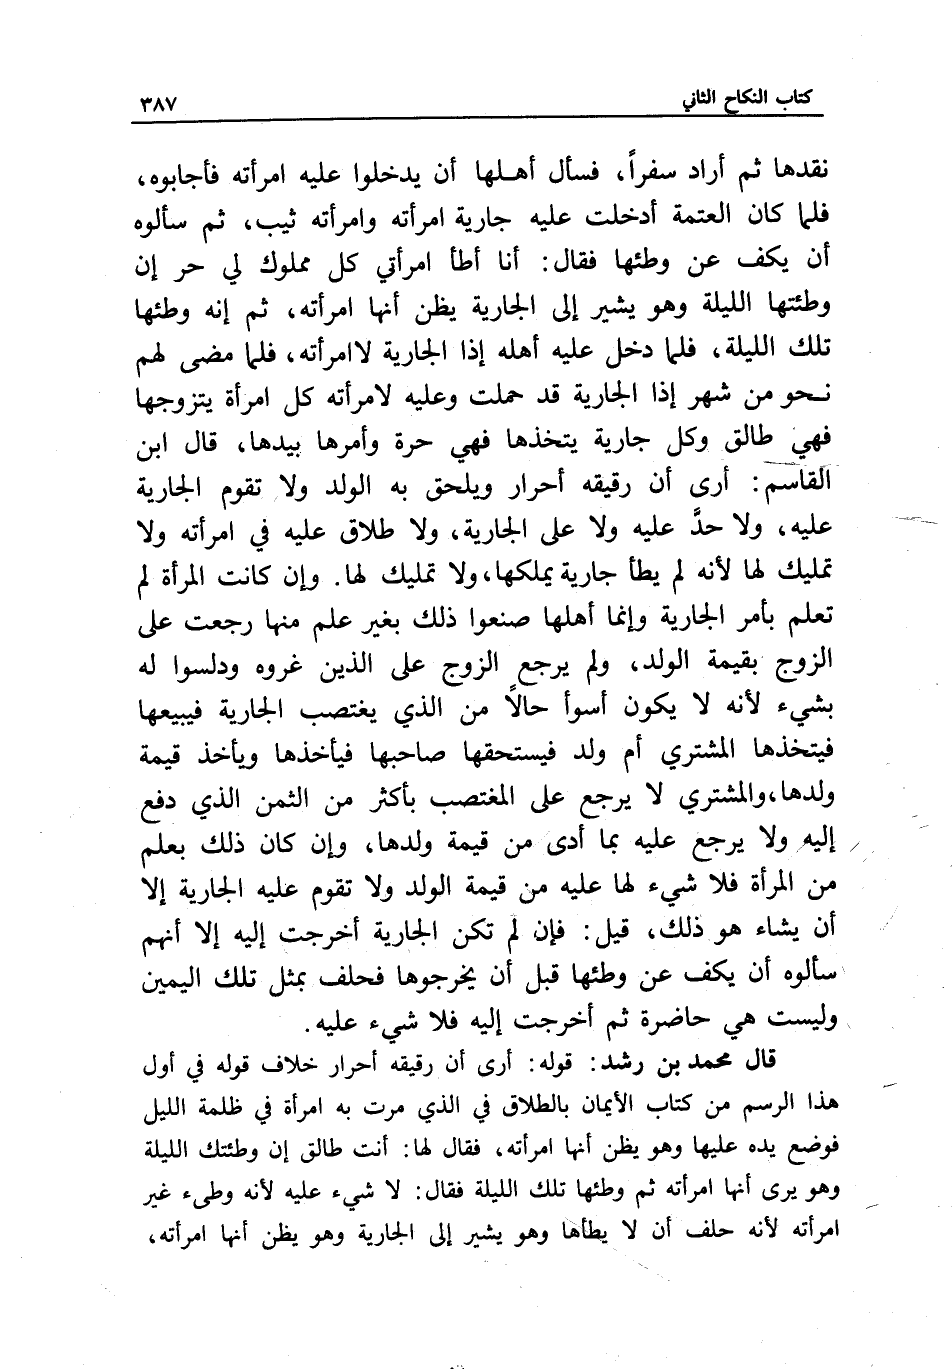 كتاب النكاح الثاني ٣٨٧
نقدها ثم أراد سفراً، فسأل أهلها أن يدخلوا عليه امرأته فأجابوه،
فلما كان العتمة أدخلت عليه جارية امرأته وامرأته ثيب، ثم سألوه
أن يكف عن وطئها فقال: أنا أطأ امرأتي كل مملوك لي حر إن
وطئتها الليلة وهو يشير إلى الجارية يظن أنها امرأته، ثم إنه وطئها
تلك الليلة، فلما دخل عليه أهله إذا الجارية لاامرأته، فلما مضى لهم
نحو من شهر إذا الجارية قد حملت وعليه لامرأته كل امرأة يتزوجها
فهي طالق وكل جارية يتخذها فهي حرة وأمرها بيدها، قال ابن
القاسم: أرى أن رقيقه أحرار ويلحق به الولد ولا تقوم الجارية
عليه، ولا حدَّ عليه ولا على الجارية، ولا طلاق عليه في امرأته ولا
تمليك لها لأنه لم يطأ جارية يملكها، ولا تمليك لها. وإن كانت المرأة لم
تعلم بأمر الجارية وإنما أهلها صنعوا ذلك بغير علم منها رجعت على
الزوج بقيمة الولد، ولم يرجع الزوج على الذين غروه ودلسوا له
بشيء لأنه لا يكون أسوأ حالاً من الذي يغتصب الجارية فيبيعها
فيتخذها المشتري أم ولد فيستحقها صاحبها فيأخذها ويأخذ قيمة
ولدها، والمشتري لا يرجع على المغتصب بأكثر من الثمن الذي دفع
إليه ولا يرجع عليه بما أدى من قيمة ولدها، وإن كان ذلك بعلم
من المرأة فلا شيء لها عليه من قيمة الولد ولا تقوم عليه الجارية إلا
أن يشاء هو ذلك، قيل: فإن لم تكن الجارية أخرجت إليه إلا أنهم
سألوه أن يكف عن وطئها قبل أن يخرجوها فحلف بمثل تلك اليمين
وليست هي حاضرة ثم أخرجت إليه فلا شيء عليه.
قال محمد بن رشد: قوله: أرى أن رقيقه أحرار خلاف قوله في أول
هذا الرسم من كتاب الأيمان بالطلاق في الذي مرت به امرأة في ظلمة الليل
فوضع يده عليها وهو يظن أنها امرأته، فقال لها: أنت طالق إن وطئتك الليلة
وهو يرى أنها امرأته ثم وطئها تلك الليلة فقال: لا شيء عليه لأنه وطىء غير
امرأته لأنه حلف أن لا يطأها وهو يشير إلى الجارية وهو يظن أنها امرأته،